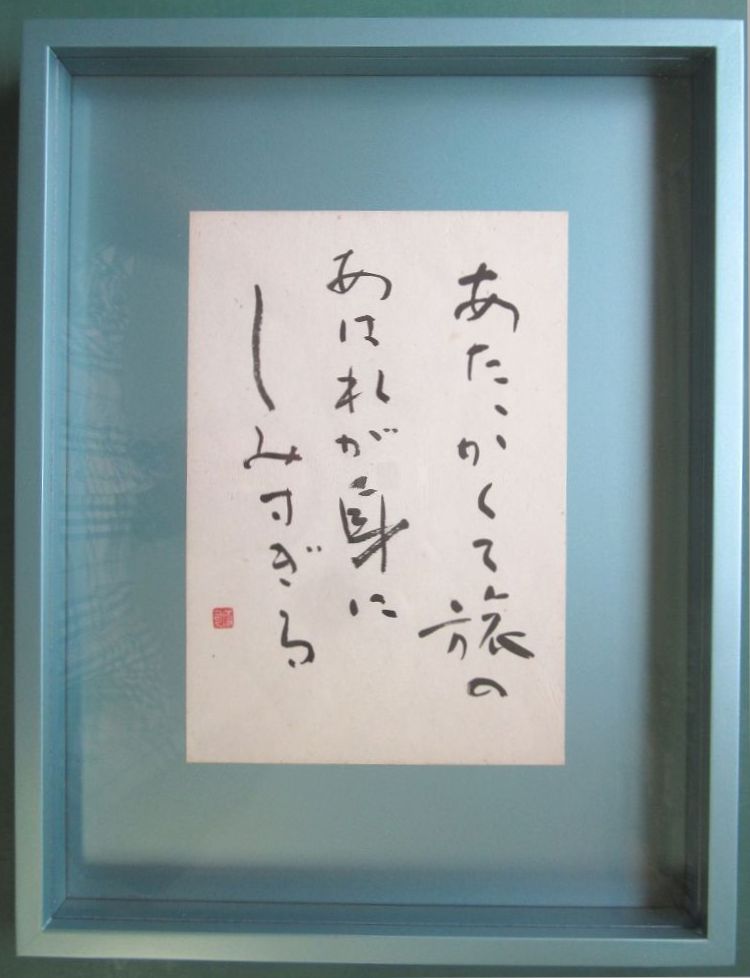 あたゝかくて旅の
あはれが身に
しみすぎる